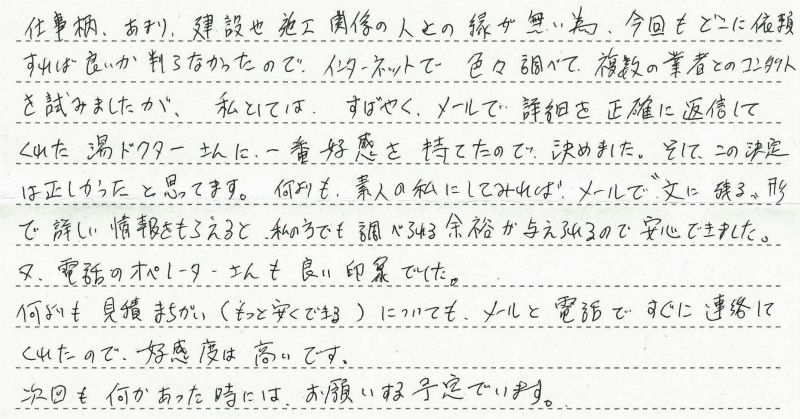 仕事柄、あまり、建設や施工関係の人との縁が無い為、今回もどこに依頼
すれば良いか判らなかったので、インターネットで色々調べて、複数の業者とのコンタクト
を試みましたが、私としては、すばやく、メールで詳細を正確に返信して
くれた湯ドクターさんに、一番好感を持てたので、決めました。そして、この決定
は正しかったと思ってます。何よりも、素人の私にしてみれば、メールで“文に残る”形
で詳しい情報をもらえると、私の方でも調べられる余裕が与えられるので安心できました。
又、電話のオペレーターさんも良い印象でした。
何よりも見積まちがい(もっと安くできる)についても、メールと電話ですぐに連絡して
くれたので、好感度は高いです。
次回も何かあった時には、お願いする予定でいます。